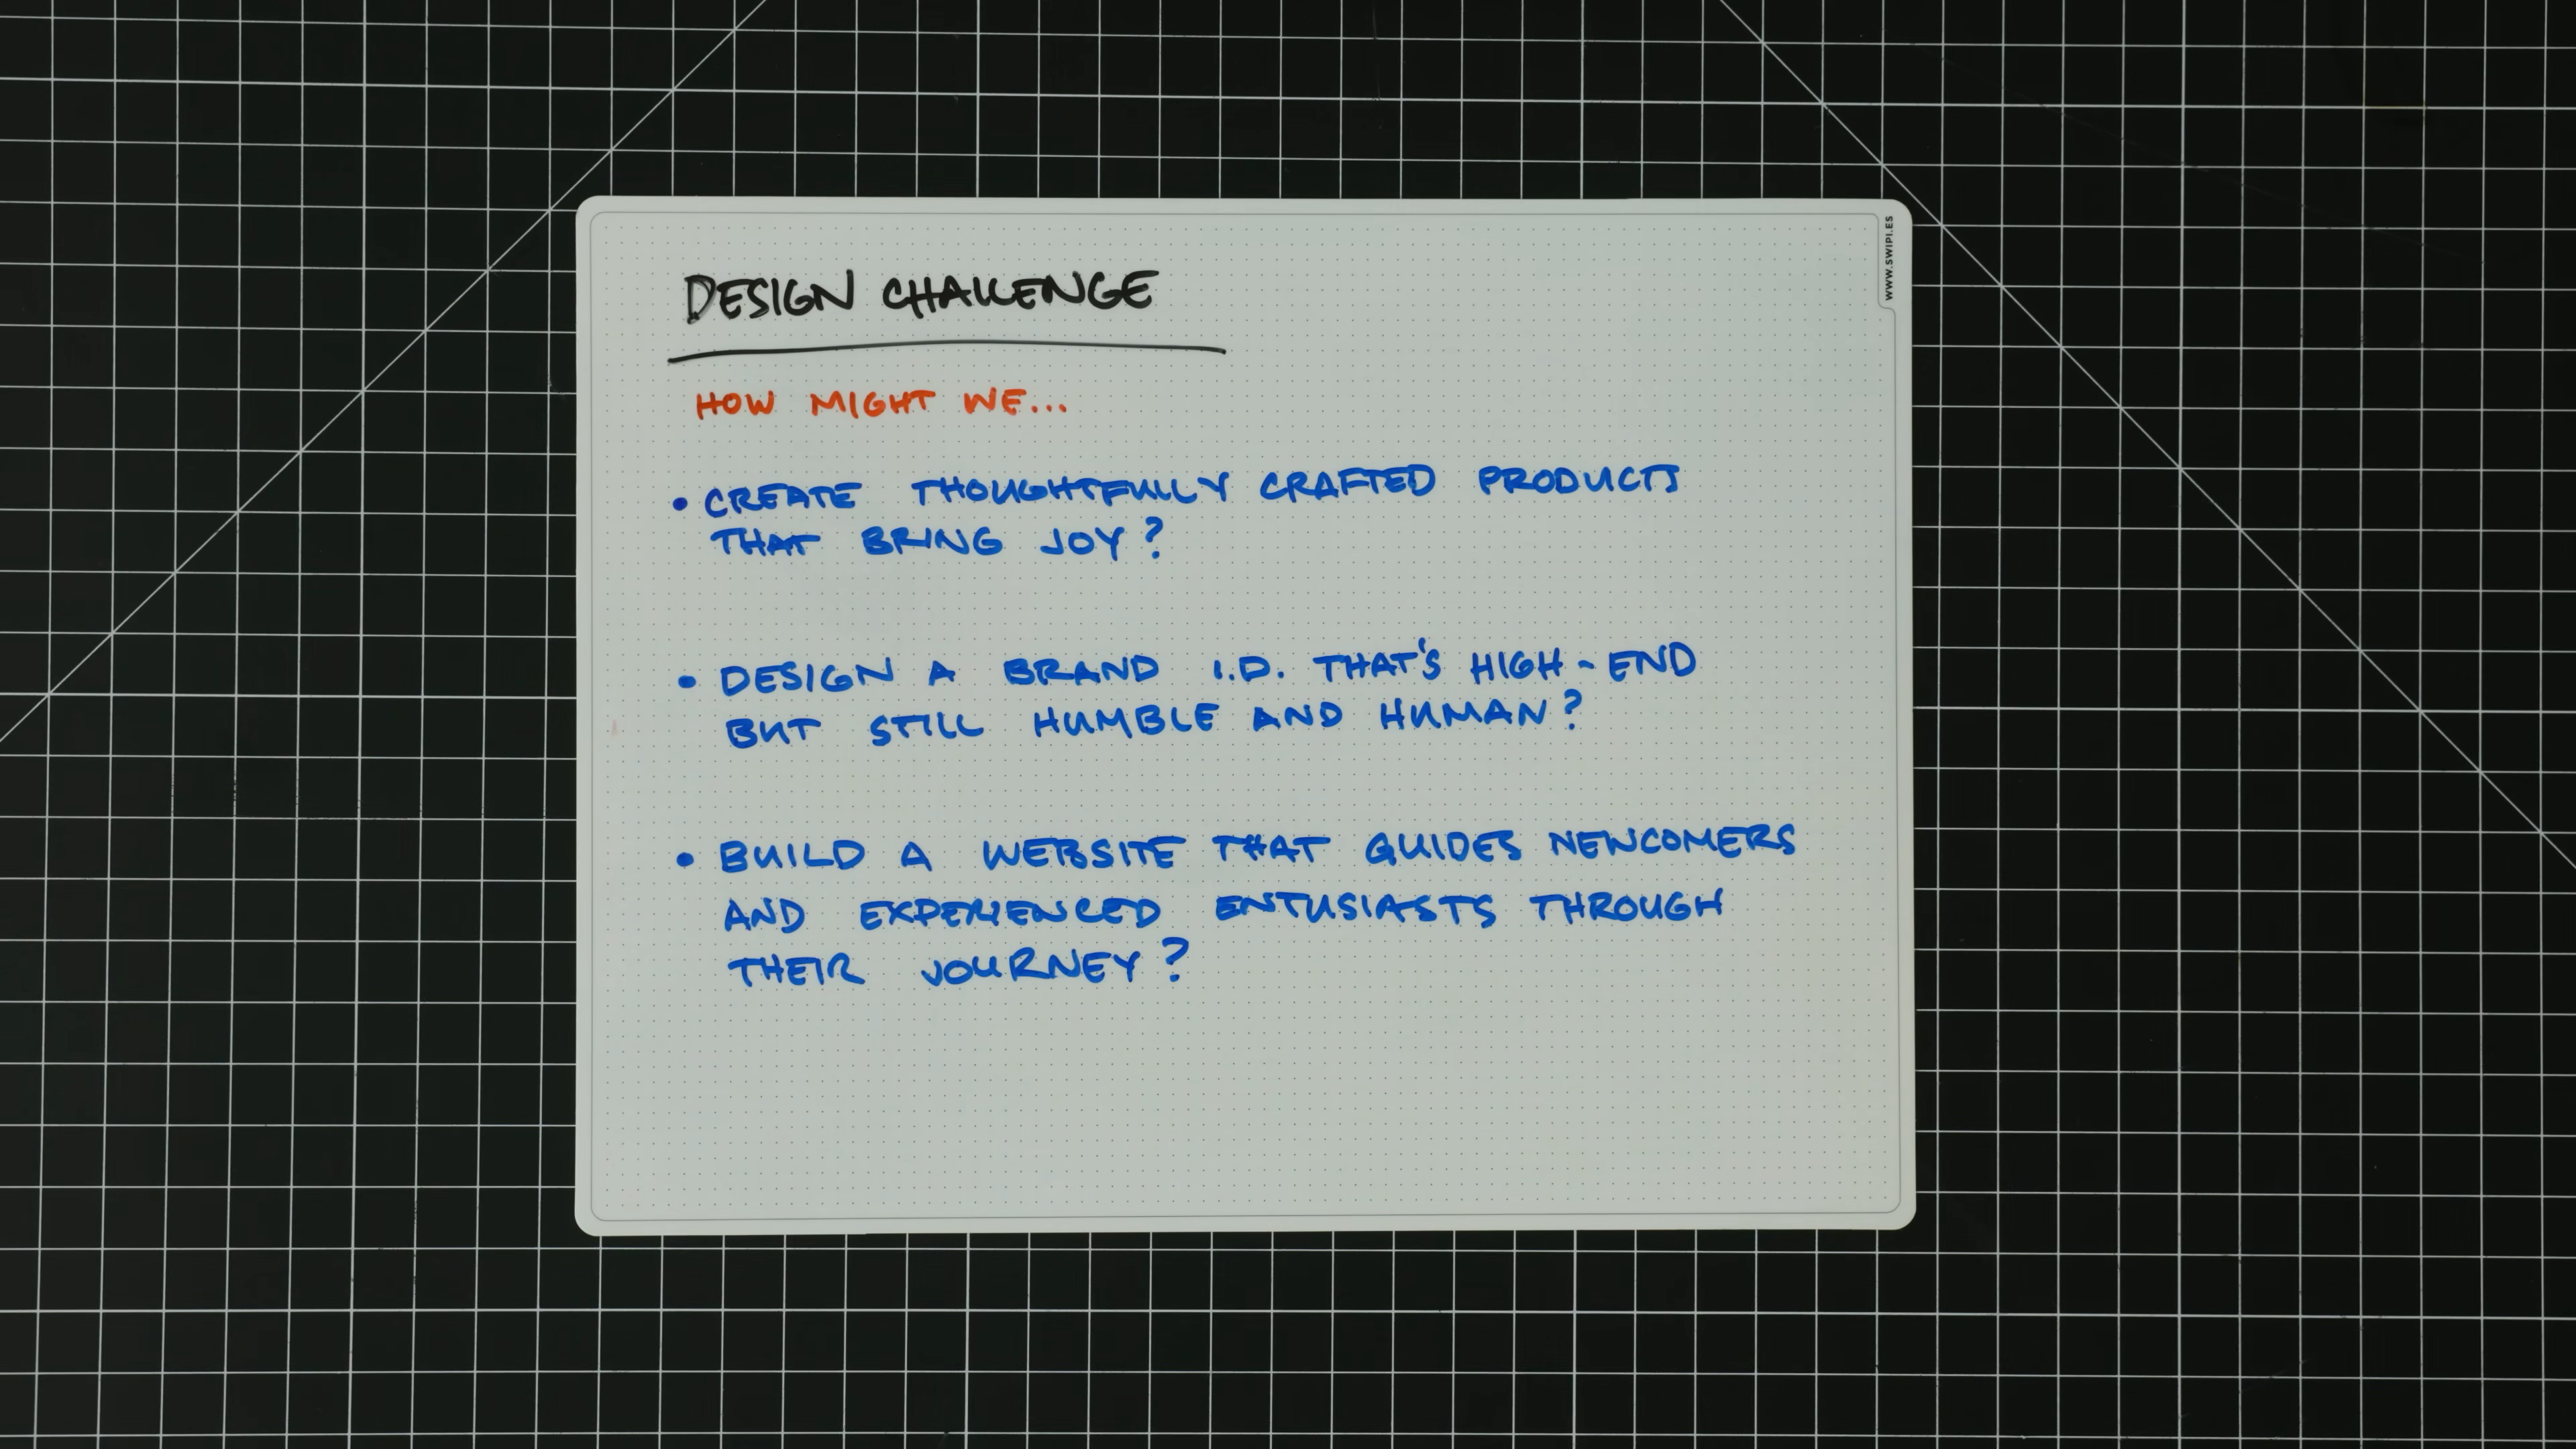 WWW.SWIPI.ES
DESIGN CHALLENGE
HOW MIGHT WE...
• CREATE THOUGHTFULLY CRAFTED PRODUCTS
THAT BRING JOY?
• DESIGN A BRAND I.D. THAT'S HIGH-END
BUT STILL HUMBLE AND HUMAN?
• BUILD A WEBSITE THAT GUIDES NEWCOMERS
AND EXPERIENCED ENTUSIASTS THROUGH
THEIR JOURNEY?